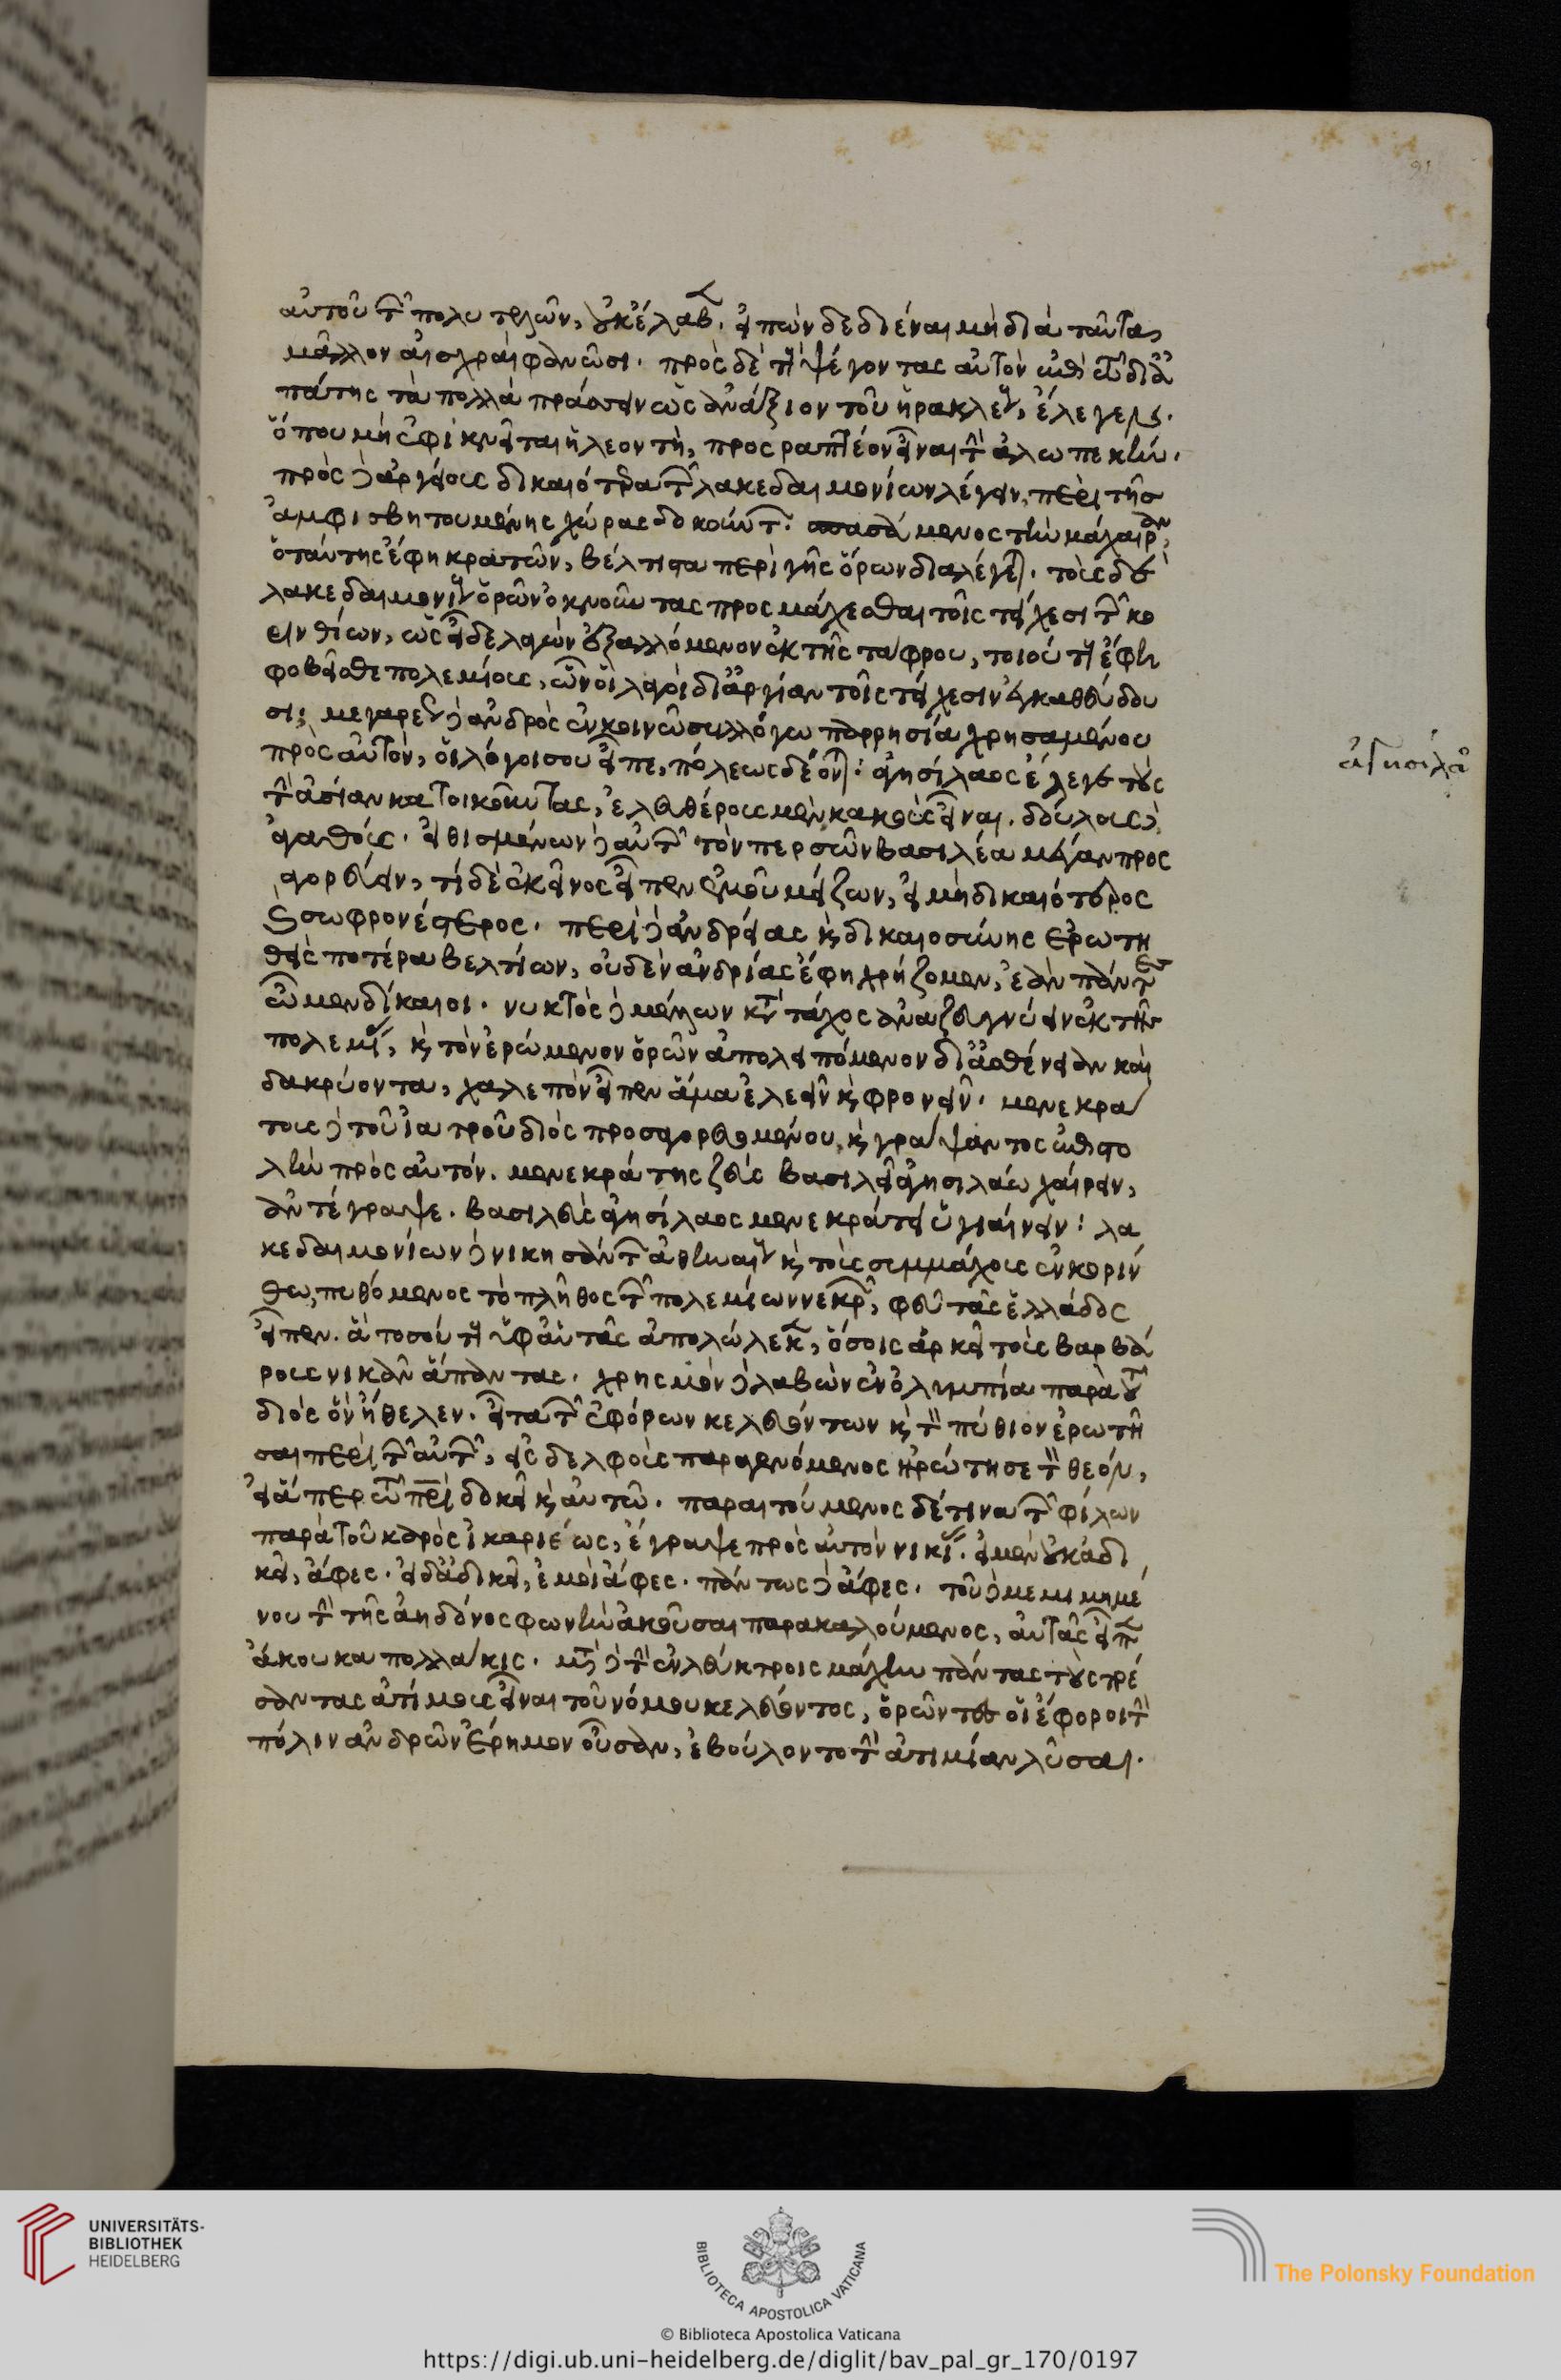 91
αὐτοῦ τῶν πολυτελῶν, οὐκ ἔλαβεν. εἰπὼν δεδιέναι μὴ διὰ ταῦτας
μᾶλλον αἰσχραὶ φανῶσι. πρὸς δὲ τοὺς ψέγοντας αὐτὸν ἐπὶ τῶ δι' ἀ
πάτης τὰ πολλὰ πράσσειν ὡς ἀνάξιον τοῦ ἡρακλέους, ἔλεγεν.
ὅπου μὴ ἐφικνεῖται ἡ λεοντὴ, προσραπτέον εἶναι τὴν ἀλωπεκὴν.
πρὸς δὲ ἀργείοις δικαιότερα τῶν λακεδαιμονίων λέγειν, περὶ τῆς
ἀμφισβητουμένης χώρας δοκοῦντας. σπασάμενος τὴν μάχαιραν,
ὁ ταύτης ἔφη κρατῶν, βέλτιστα περὶ γῆς ὅρων διαλέγεται. τοὺς δὲ
λακεδαιμονίους ὁρῶν ὀκνοῦντας προσμάχεσθαι τοῖς τείχεσι τῶν κο
ρινθίων, ὡς εἶδε λαγὼν ἐξαλλόμενον ἐκ τῆς τάφρου, τοιούτους ἔφη
φοβεῖσθε πολεμίους, ὧν οἱ λαγοὶ δι' ἀργίαν τοῖς τείχεσιν ἐγκαθεύδου
σι; μεγαρέως δὲ ἀνδρὸς ἐν κοινῶ συλλόγω παρρησία χρησαμένου
πρὸς αὐτὸν, οἱ λόγοι σου εἶπε, πόλεως δέονται: ἀγησίλαος ἔλεγε τοὺς
τὴν ἀσίαν κατοικοῦντας, ἐλευθέρους μὲν κακοὺς εἶναι. δούλους δὲ
ἀγαθούς. εἰθισμένων δὲ αὐτῶν τὸν περσῶν βασιλέα μέγαν προς
αγορεύειν, τί δὲ ἐκεῖνος εἶπεν ἐμοῦ μείζων, εἰ μὴ δικαιότερος
καὶ σωφρονέστερος. περὶ δὲ ἀνδρείας καὶ δικαιοσύνης ἐρωτη
θεὶς ποτέρα βελτίων, οὐδὲν ἀνδρίας ἔφη χρήζομεν, ἐὰν πάντες
ὦμεν δίκαιοι. νυκτὸς δὲ μέλλων κατὰ τάχος ἀναζευγνύειν ἐκ τῆς
πολεμίας, καὶ τὸν ἐρώμενον ὁρῶν ἀπολειπόμενον δι' ἀσθένειαν καὶ
δακρύοντα, χαλεπὸν εἶπεν ἅμα ἐλεεῖν καὶ φρονεῖν. μενεκρά
τους δὲ τοῦ ἰατροῦ διὸς προσαγορευομένου, καὶ γράψαντος ἐπιστο
λὴν πρὸς αὐτόν. μενεκράτης ζεὺς βασιλεῖ ἀγησιλάω χαίρειν,
ἀντέγραψε. βασιλεὺς ἀγησίλαος μενεκράτει ὑγιαίνειν: λα
κεδαιμονίων δὲ νικησάντων ἀθηναίους καὶ τοὺς συμμάχους ἐν κορίν
θω, πυθόμενος τὸ πλῆθος τῶν πολεμίων νεκρῶν, φεῦ τᾶς ἑλλάδος
εἶπεν. ἃ τοσούτους ὑφ' αὑτᾶς ἀπολώλεκεν, ὅσοις ἀρκεῖ τοὺς βαρβά
ρους νικᾶν ἅπαντας. χρησμὸν δὲ λαβὼν ἐν ὀλυμπία παρὰ τοῦ
διὸς ὃν ἤθελεν. εἶτα τῶν ἐφόρων κελευόντων καὶ τὸν πύθιον ἐρωτῆ
σαι περὶ τῶν αὐτῶν, εἰς δελφοὺς παραγενόμενος ἠρώτησε τὸν θεὸν,
εἰ ἅπερ τῶ πατρὶ δοκεῖ καὶ αὐτῶ. παραιτούμενος δέ τινα τῶν φίλων
παρὰ τοῦ καρὸς ἱκαριέως, ἔγραψε πρὸς αὐτὸν νικίας. εἰ μὲν οὐκ ἀδι
κεῖ, ἄφες. εἰ δ' ἀδικεῖ, ἐμοὶ ἄφες. πάντως δὲ ἄφες. τοῦ δὲ μεμιμημέ
νου τὴν τῆς ἀηδόνος φωνὴν ἀκοῦσαι παρακαλούμενος, αὐτᾶς εἶπεν
ἄκουκα πολλάκις. μετὰ δὲ τὴν ἐν λεύκτροις μάχην πάντας τοὺς τρέ
σαντας ἀτίμους εἶναι τοῦ νόμου κελεύοντος, ὁρῶντες οἱ ἔφοροι τὴν
πόλιν ἀνδρῶν ἔρημον οὖσαν, ἐβούλοντο τὴν ἀτιμίαν λῦσαι.
ἀγησιλάου
UNIVERSITÄTS-
BIBLIOTHEK
HEIDELBERG
BIBLIOTECA APOSTOLICA VATICANA
The Polonsky Foundation
© Biblioteca Apostolica Vaticana
https://digi.ub.uni-heidelberg.de/diglit/bav_pal_gr_170/0197